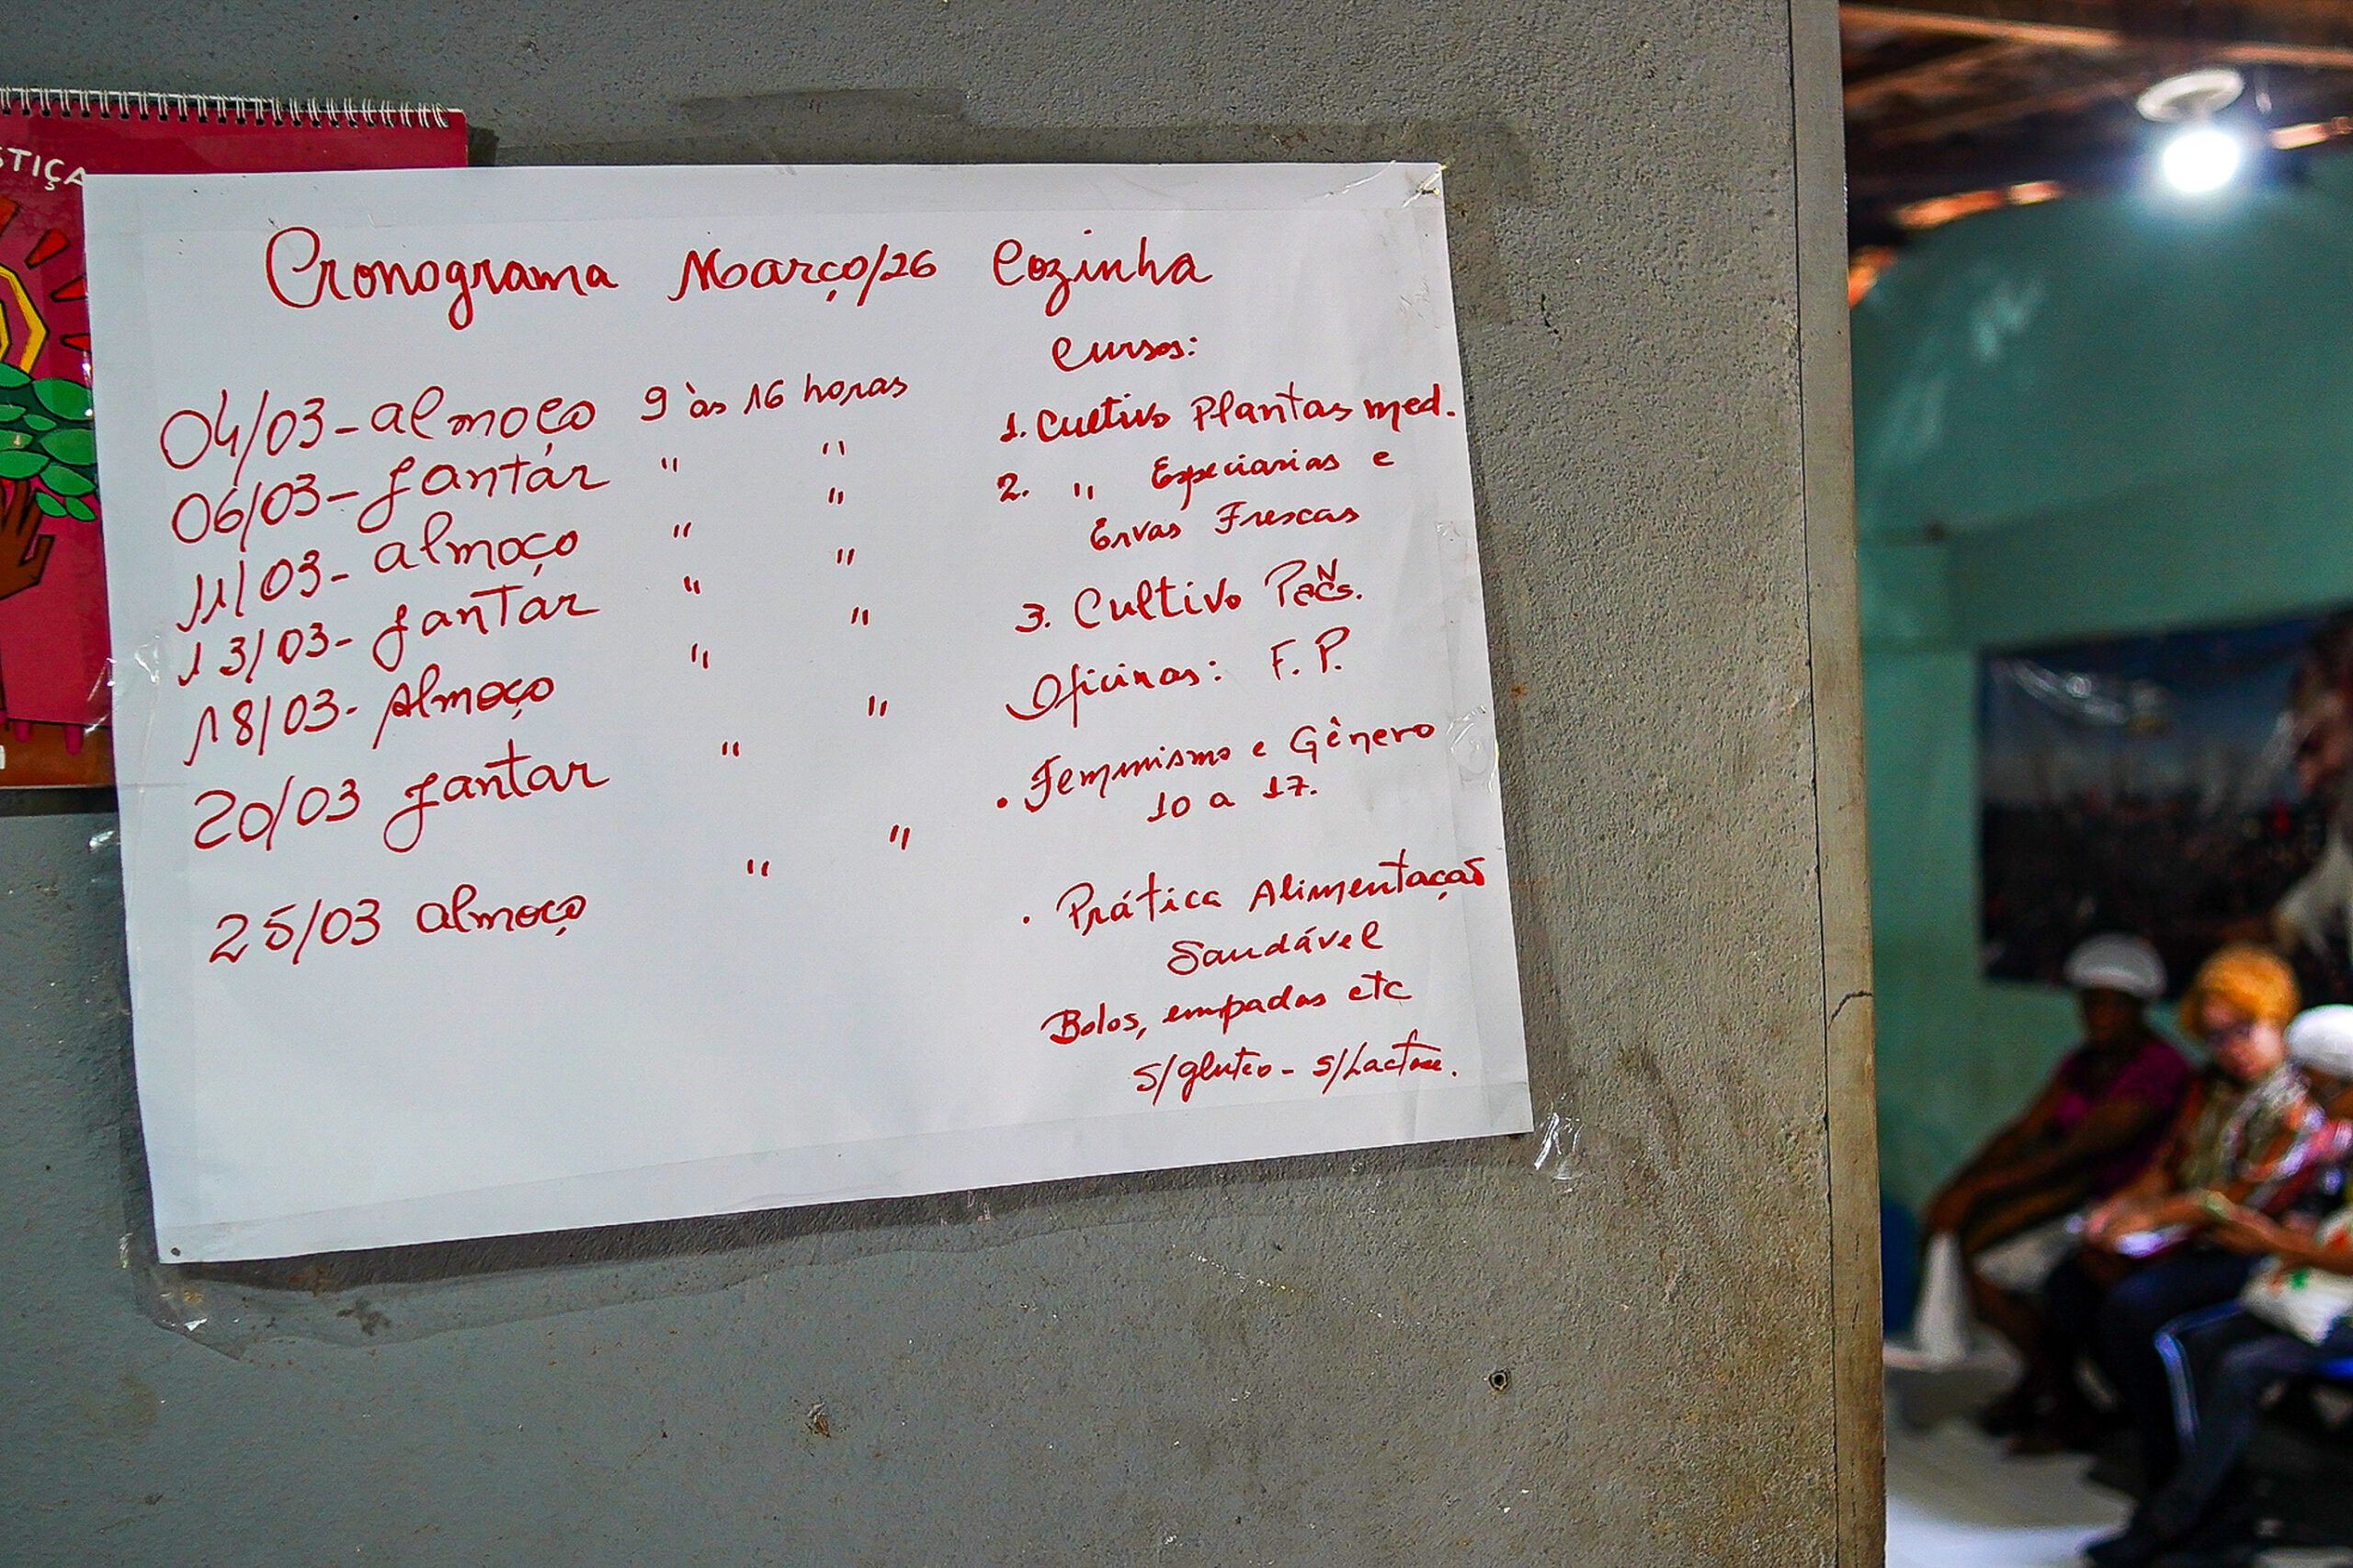 STIÇA
Cronograma Março/26 Cozinha
04/03-almoço 9 às 16 horas
06/03-jantar " "
11/03-almoço " "
13/03-jantar " "
18/03-Almoço " "
20/03 jantar " "
25/03 almoço " "
Cursos:
1. Cultivo Plantas med.
2. " Especiarias e
Ervas Frescas
3. Cultivo
Oficinas: F. P.
· Feminismo e Gênero
10 a 17.
· Prática Alimentação
Saudável
Bolos, empadas etc
S/gluteo - S/Lactose.